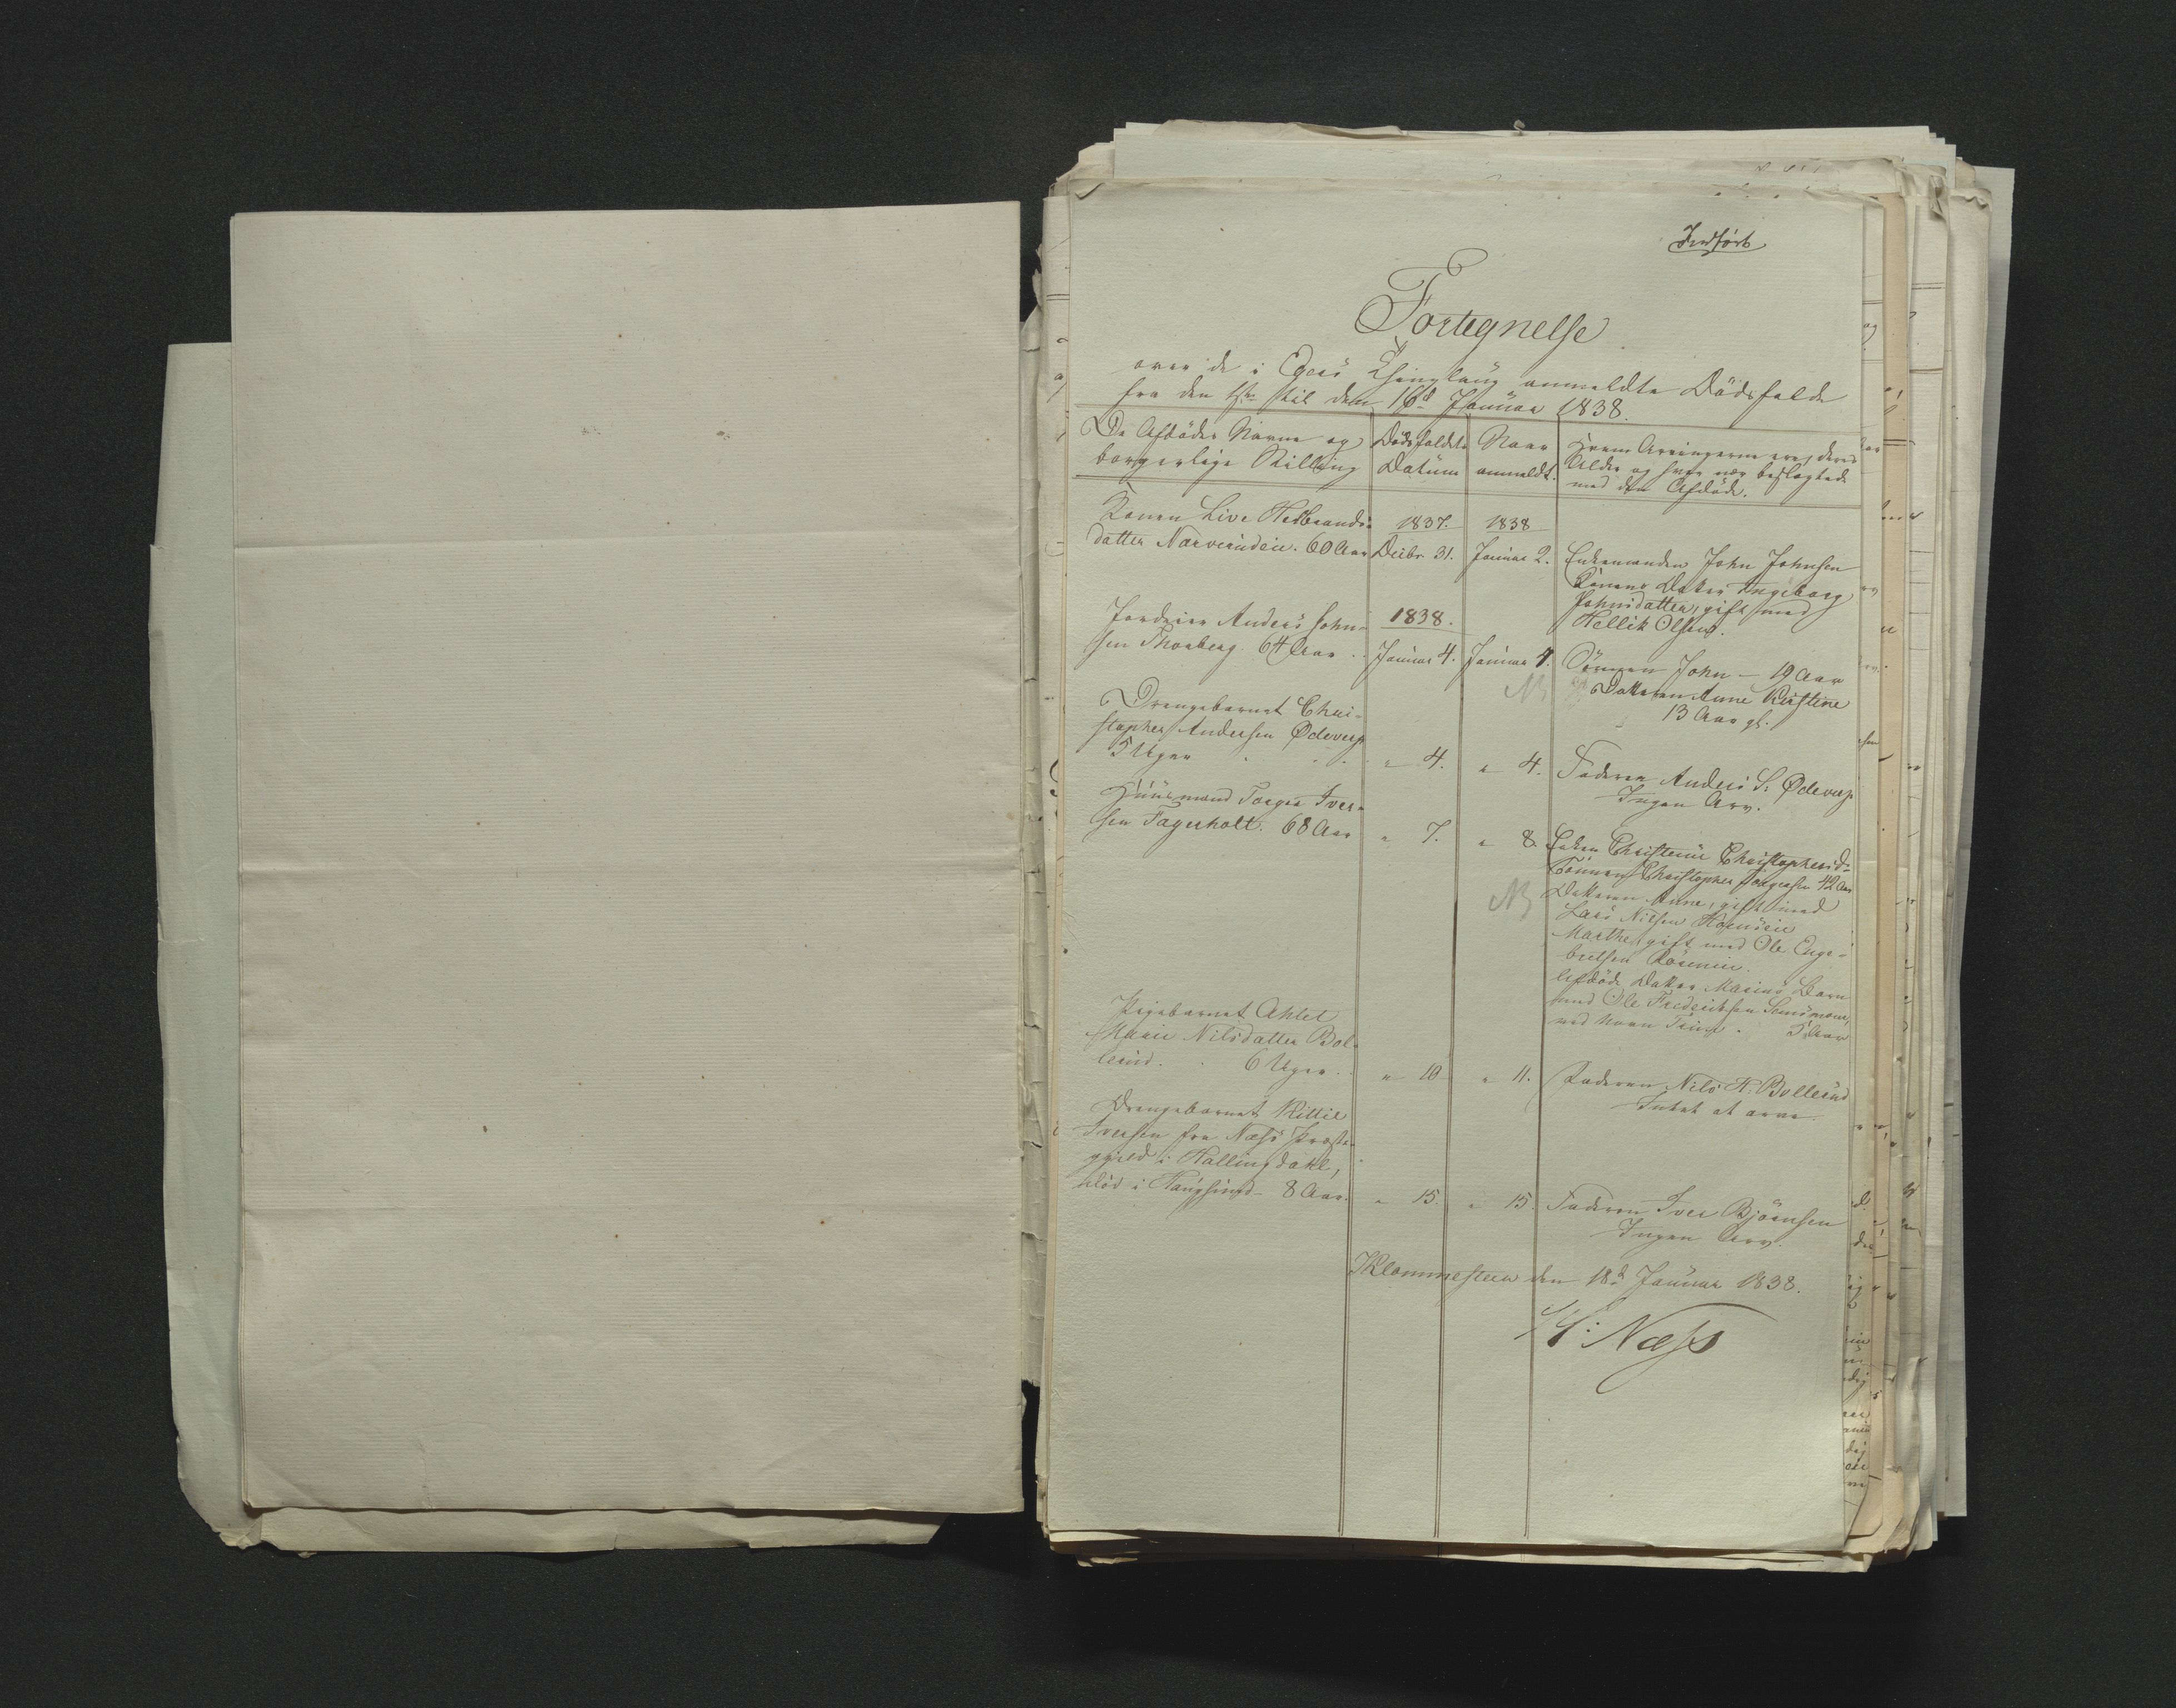 Indført
Fortegnelse
over de i Egers Thinglaug anmeldte Dødsfalde
fra den 1ste til den 16d Januar 1838.
De Afdødes Navne og
borgerlige Stilling
Dødsfaldets
Datum
Naar
anmeldt.
Hvem Arvingerne ere, deres
Alder og hvor nær beslægtede
med den Afdøde.
Konen Live Helbrands-
datter Narverudeie. 60 Aar
1837.
Decbr 31.
1838
Januar 2.
Enkemanden John Johnsen
Konens Datter Ingeborg
Johnsdatter, gift med
Hellik Olsen.
Jordeier Anders John-
sen Thorberg. 64 Aar
1838.
Januar 4.
Januar 4.
NB
Sønnen John - 19 Aar
Datteren Anne Kirstine
13 Aar gl.
Drengebarnet Chri-
stopher Andersen Ødeverp
5 Uger
" 4.
" 4.
Faderen Anders S. Ødeverp
Ingen Arv.
Huusmand Torger Iver-
sen Fagerholt. 68 Aar
" 7.
" 8.
NB
Enken Christense Christophersd-
Sønnen Christopher Torgersen 42 Aar
Datteren Anne, gift med
Lars Nilsen
Marthe, gift med Ole Enge-
bretsen
Afdøde Datter Marens Barn
med Ole Fredriksen
ved Navn 5 Aar
Pigebarnet Ahlet
Marie Nilsdatter Bol-
lerud. 6 Uger
" 10
" 11.
Faderen Nils H. Bollerud
Intet at arve.
Drengebarnet Kittil
Iversen fra Næss Præste-
gjeld i Hallingdahl,
død i Haugsund - 8 Aar.
" 15.
" 15.
Faderen Iver Bjørnsen
Ingen Arv.
Klommesteen den 18d Januar 1838.
Næss